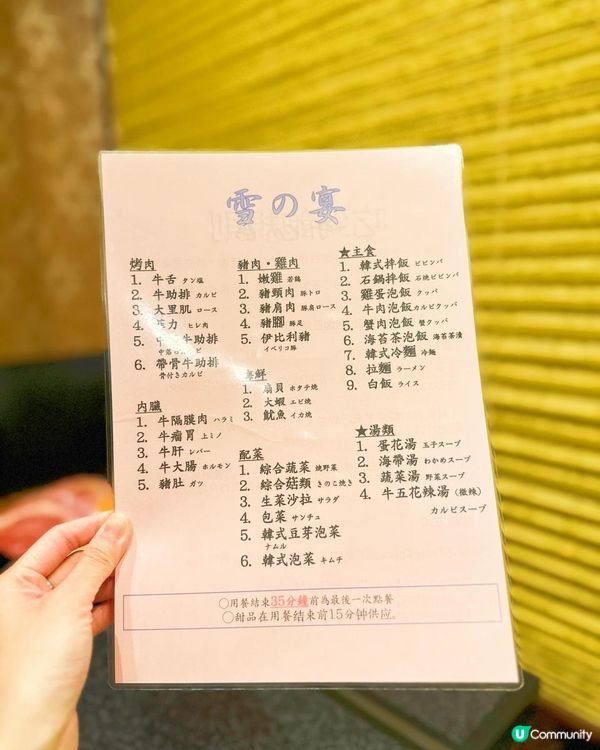 雪の宴
烤肉
1. 牛舌 タン塩
2. 牛助排 カルビ
3. 大里肌 ロース
4. 力 ヒレ肉
5. 牛助排
中落ちカルビ
6. 帶骨牛助排
骨付きカルビ
内臟
1. 牛隔膜肉 ハラミ
2. 牛瘤胃 上ミノ
3. 牛肝 レバー
4. 牛大腸 ホルモン
5. 豬肚 ガツ
豬肉・雞肉
1. 嫩雞 若鶏
2. 豬頸肉 豚トロ
3. 豬肩肉 豚肩ロース
4. 豬腳 豚足
5. 伊比利豬
イベリコ豚
海鮮
1. 扇貝 ホタテ焼
2. 大蝦 エビ焼
3. 魷魚 イカ焼
配菜
1. 綜合蔬菜 焼野菜
2. 綜合菇類 きのこ焼き
3. 生菜沙拉 サラダ
4. 包菜 サンチュ
5. 韓式豆芽泡菜
ナムル
6. 韓式泡菜 キムチ
★主食
1. 韓式拌飯 ビビンバ
2. 石鍋拌飯 石焼ビビンバ
3. 雞蛋泡飯 クッパ
4. 牛肉泡飯 カルビクッパ
5. 蟹肉泡飯 蟹クッパ
6. 海苔茶泡飯 海苔茶漬
7. 韓式冷麵 冷麺
8. 拉麵 ラーメン
9. 白飯 ライス
★湯類
1. 蛋花湯 玉子スープ
2. 海帶湯 わかめスープ
3. 蔬菜湯 野菜スープ
4. 牛五花辣湯（微辣）
カルビスープ
○用餐結束35分鐘前為最後一次點餐
○甜品在用餐结束前15分钟供应。
U Community